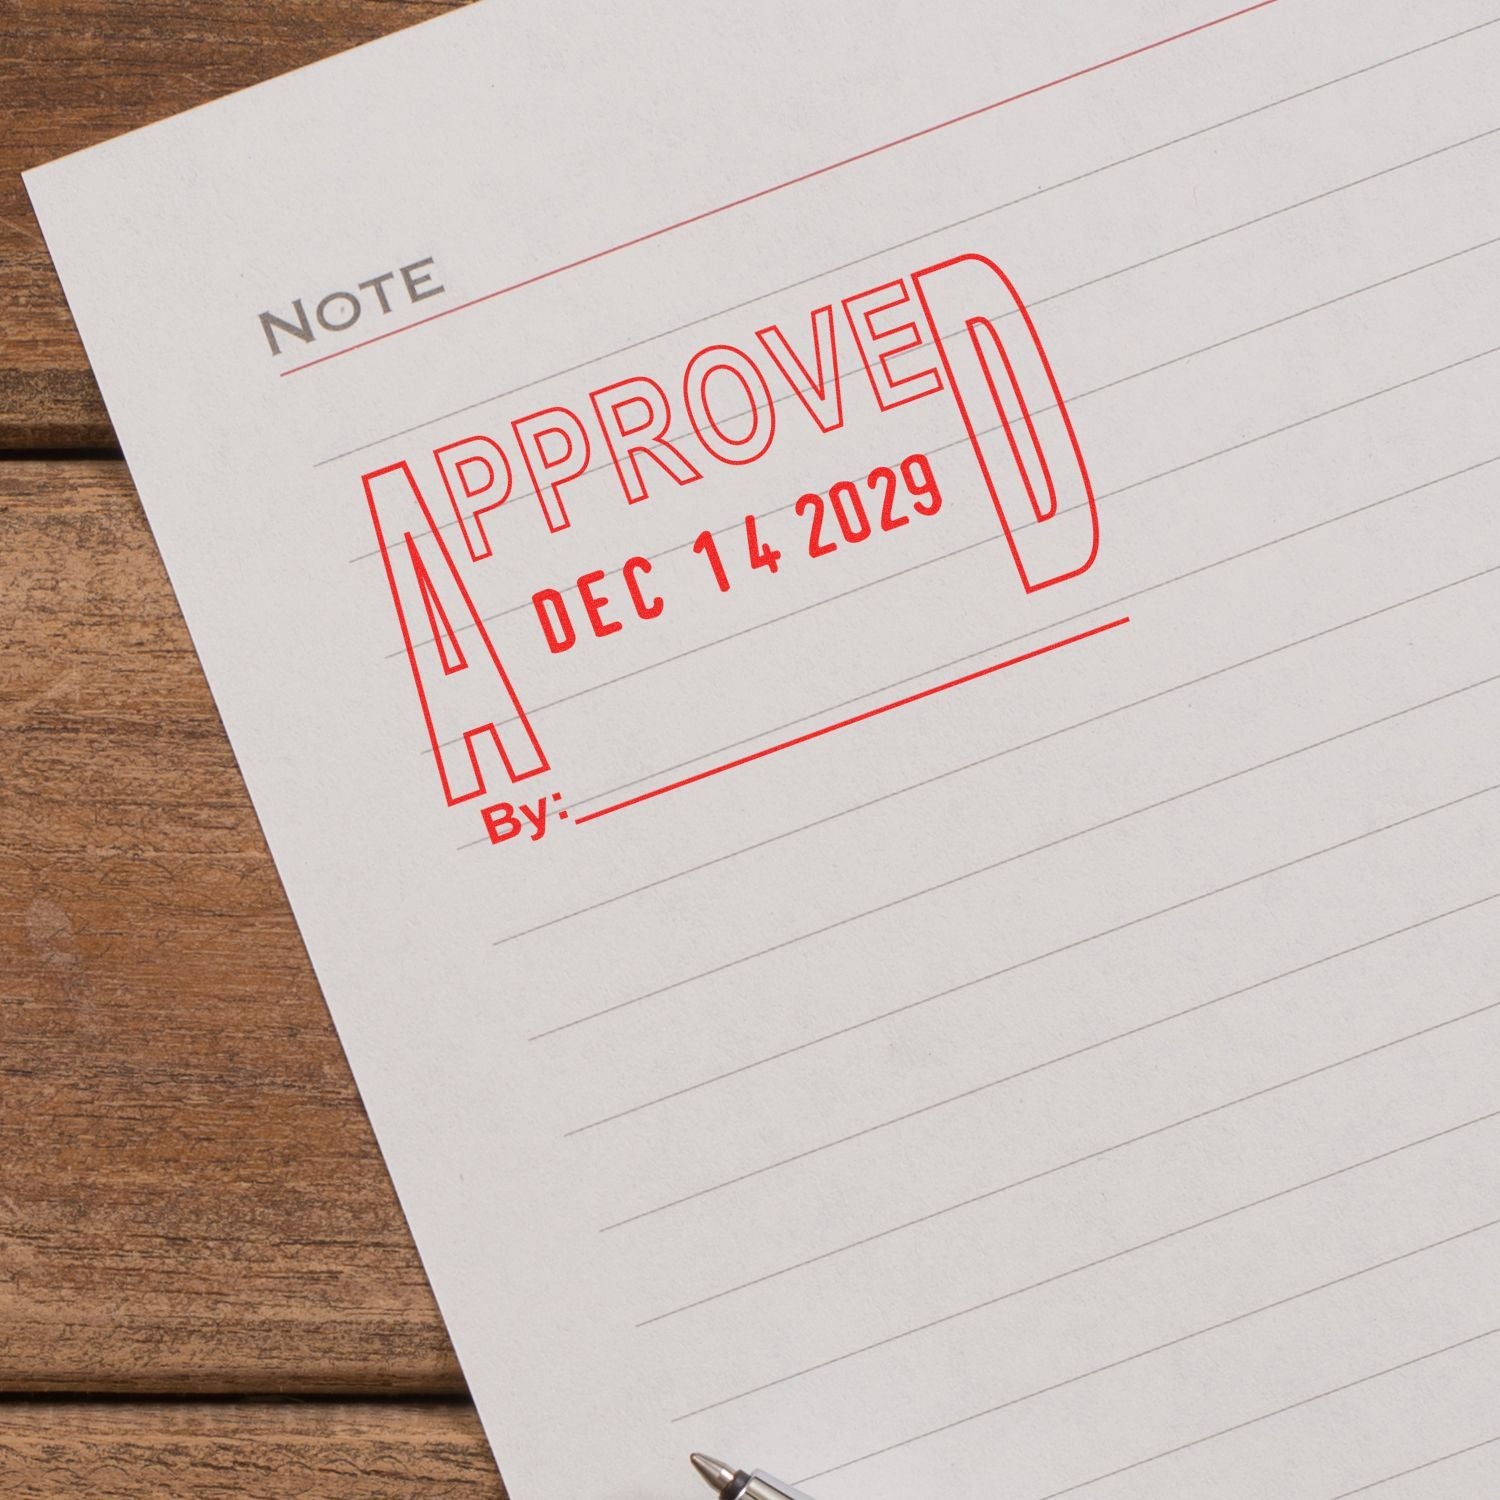 NOTE
APPROVED
DEC 14 2029
By: